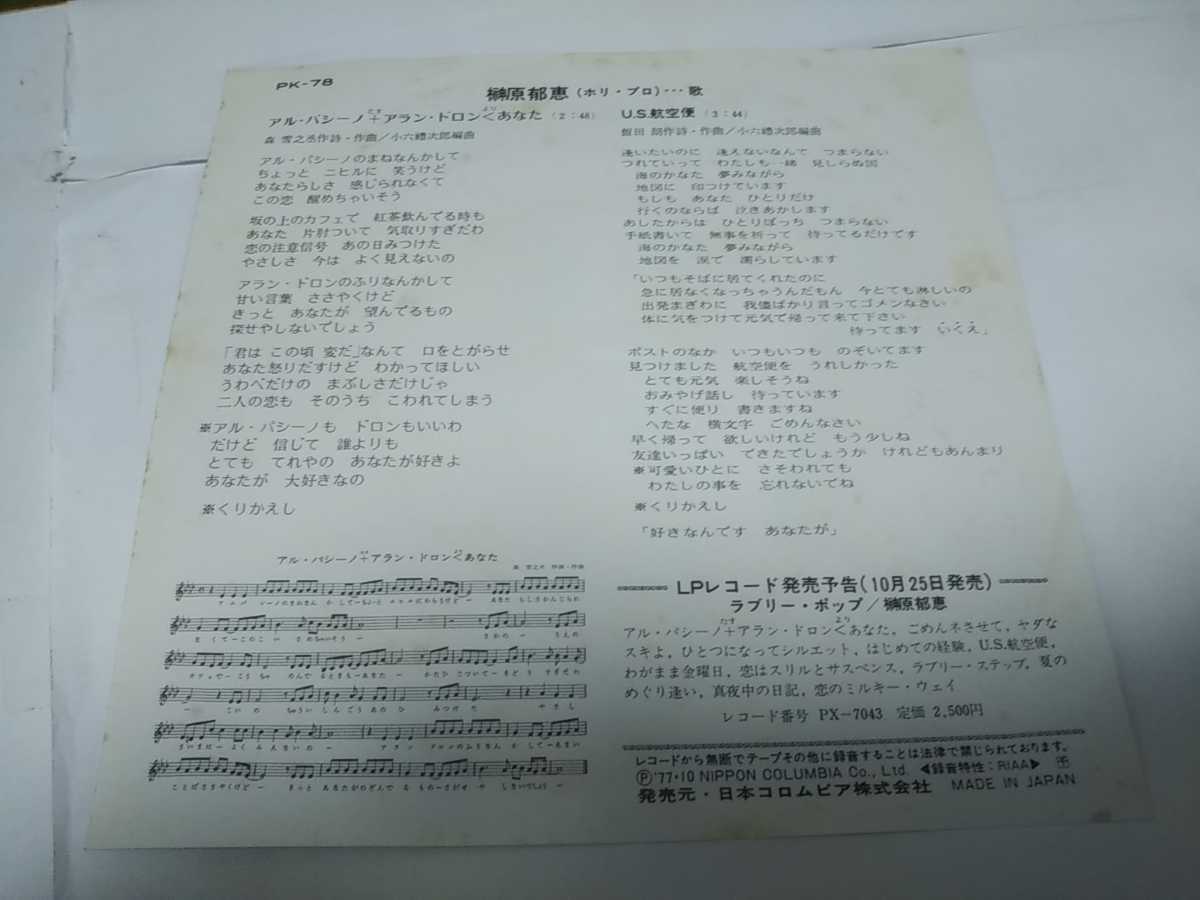 PK-78
榊原郁恵(ホリ・プロ)…歌
アル・パシーノ+アラン・ドロン<あなた (2:48)
たす
より
森 雪之丞作詩・作曲/小六禮次郎編曲
アル・パシーノのまねなんかして
ちょっと ニヒルに 笑うけど
あなたらしさ 感じられなくて
この恋 醒めちゃいそう
坂の上のカフェで 紅茶飲んでる時も
あなた 片肘ついて 気取りすぎだわ
恋の注意信号 あの日みつけた
やさしさ 今は よく見えないの
アラン・ドロンのふりなんかして
甘い言葉 ささやくけど
きっと あなたが 望んでるもの
探せやしないでしょう
「君は この頃 変だ」なんて 口をとがらせ
あなた怒りだすけど わかってほしい
うわべだけの まぶしさだけじゃ
二人の恋も そのうち こわれてしまう
※アル・パシーノも ドロンもいいわ
だけど 信じて 誰よりも
とても てれやの あなたが好きよ
あなたが 大好きなの
※くりかえし
U.S.航空便 (3:44)
飯田 朗作詩・作曲/小六禮次郎編曲
逢いたいのに 逢えないなんて つまらない
つれていって わたしも一緒 見しらぬ国
海のかなた 夢みながら
地図に 印つけています
もしも あなた ひとりだけ
行くのならば 泣きあかします
あしたからは ひとりぼっち つまらない
手紙書いて 無事を祈って 待ってるだけです
海のかなた 夢みながら
地図を 涙で 濡らしています
「いつもそばに居てくれたのに
急に居なくなっちゃうんだもん 今とても淋しいの
出発まぎわに 我儘ばかり言ってゴメンなさい
体に気をつけて元気で帰って来て下さい
待ってます いくえ」
ポストのなか いつもいつも のぞいてます
見つけました 航空便を うれしかった
とても元気 楽しそうね
おみやげ話し 待っています
すぐに便り 書きますね
へたな 横文字 ごめんなさい
早く帰って 欲しいけれど もう少しね
友達いっぱい できたでしょうか けれどもあんまり
※可愛いひとに さそわれても
わたしの事を 忘れないでね
※くりかえし
「好きなんです あなたが」
アル・パシーノ+アラン・ドロン<あなた
LPレコード発売予告(10月25日発売)
ラブリー・ポップ/榊原郁恵
アル・パシーノ+アラン・ドロン<あなた,ごめんネさせて,ヤダな
たす
より
スキよ,ひとつになってシルエット,はじめての経験,U.S.航空便,
わがまま金曜日,恋はスリルとサスペンス,ラブリー・ステップ,夏の
めぐり逢い,真夜中の日記,恋のミルキー・ウェイ
レコード番号 PX-7043 定価 2,500円
レコードから無断でテープその他に録音することは法律で禁じられております。
Ⓟ'77・10 NIPPON COLUMBIA Co., Ltd. ◀録音特性:RIAA▶
発売元・日本コロムビア株式会社 MADE IN JAPAN